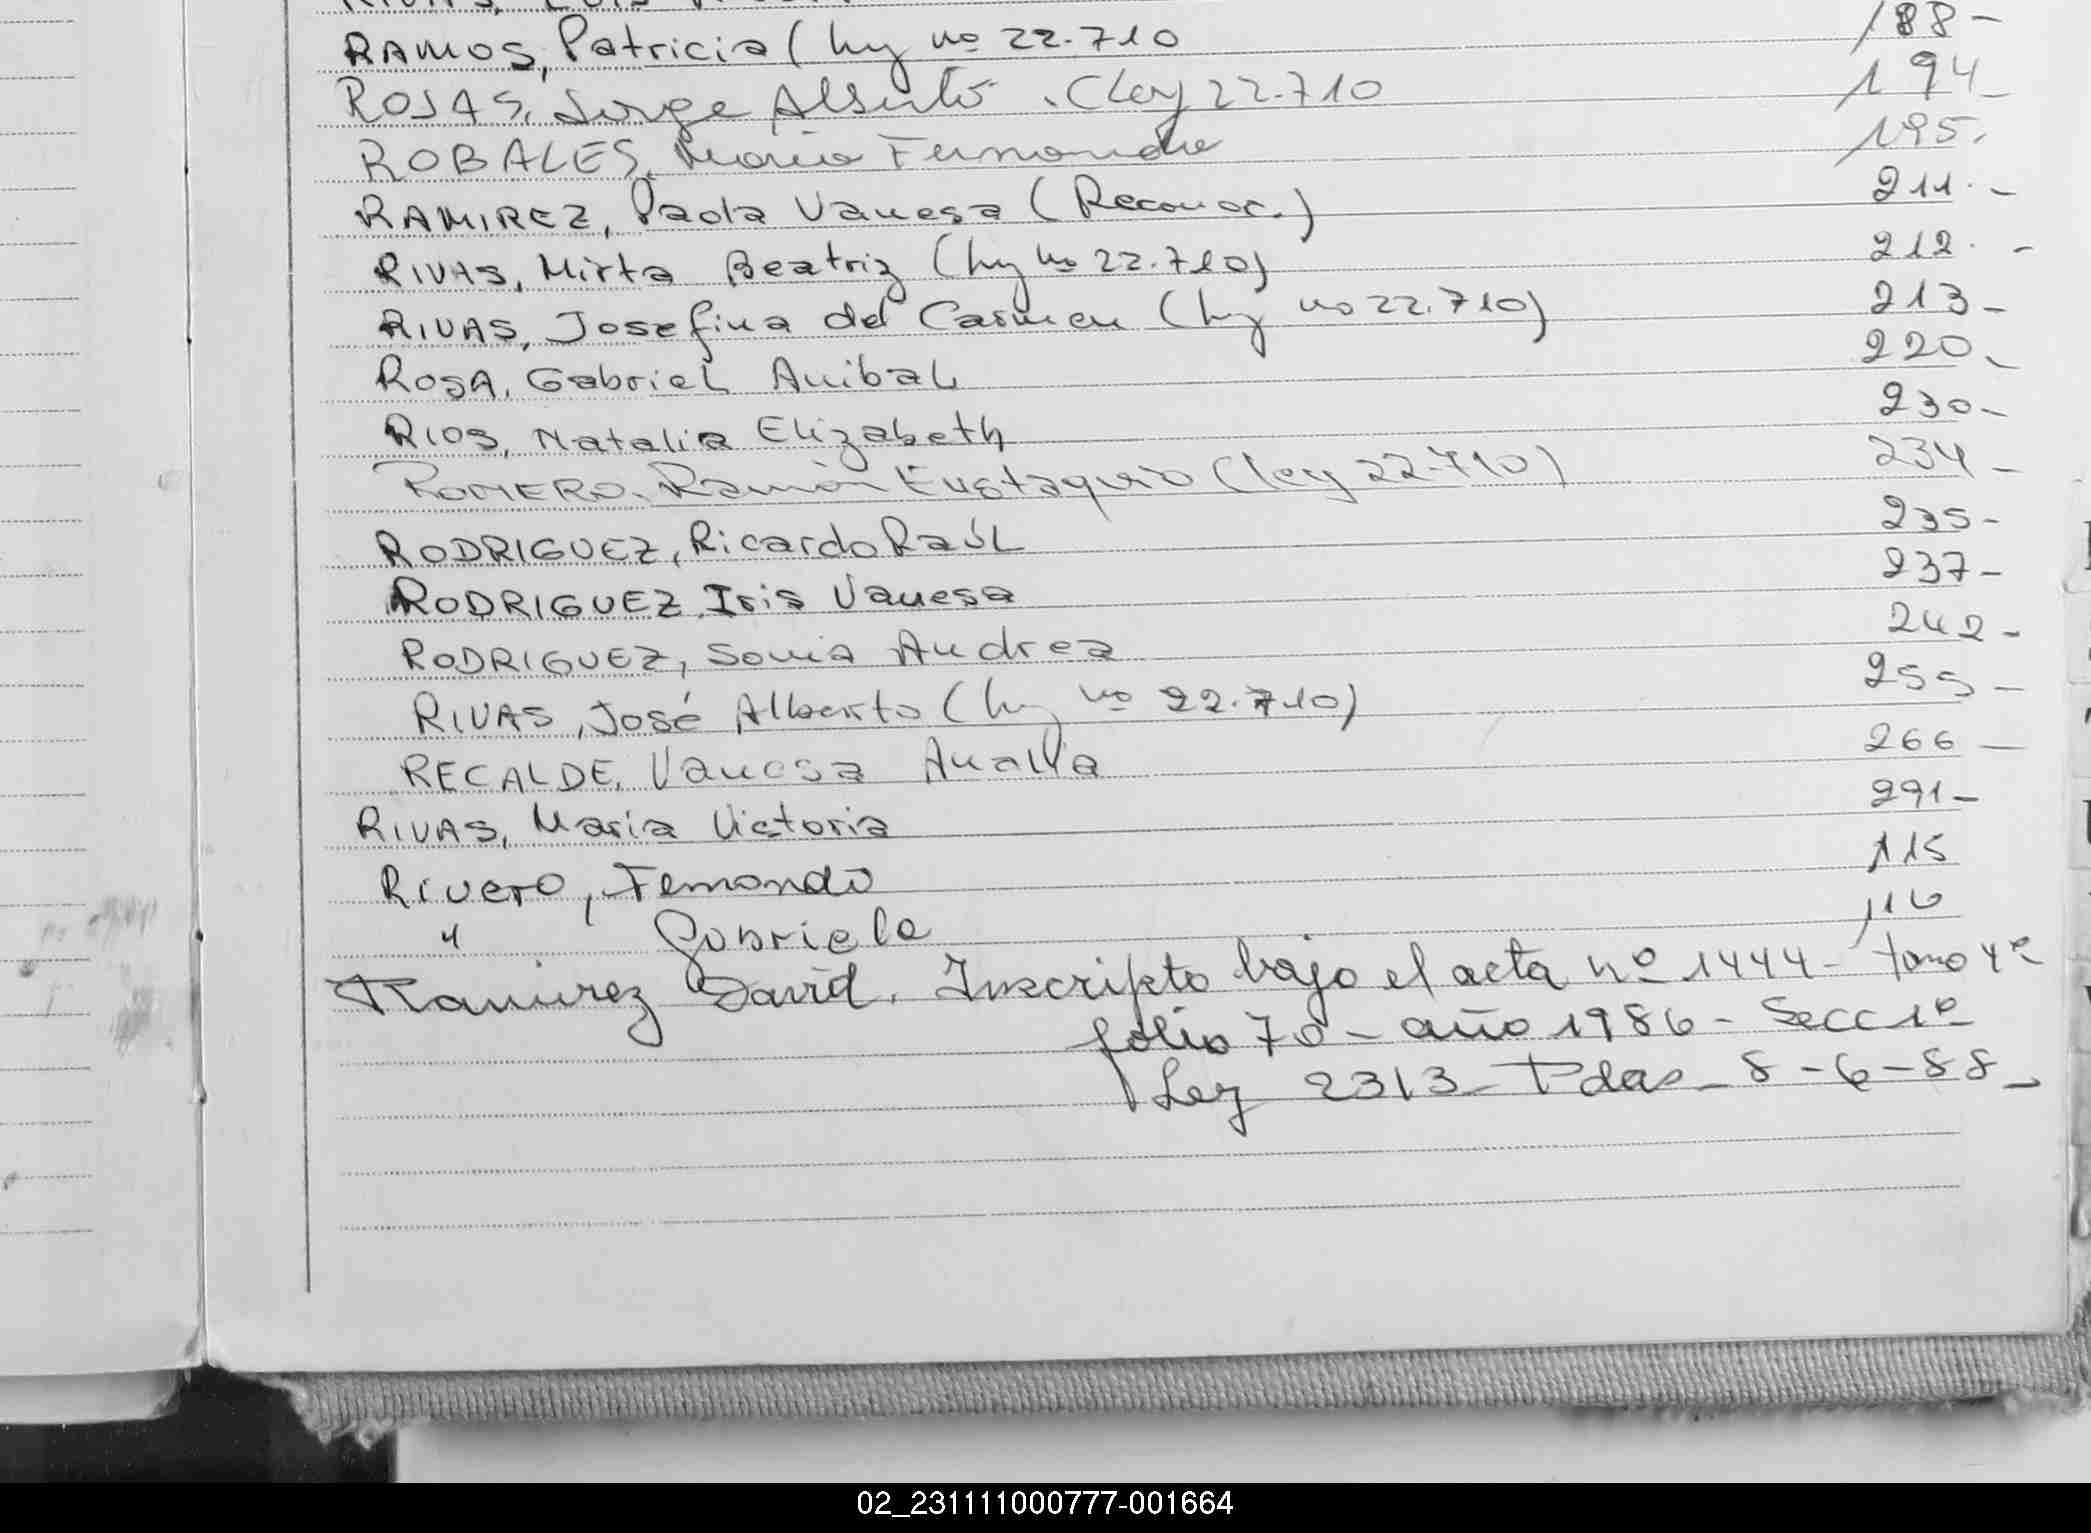 RAMOS, Patricia (ley nº 22.710 188-
ROJAS, Jorge Alberto. (Ley 22.710 194-
ROBALES, María Fernanda 195.
RAMIREZ, Paola Vanesa (Reconoc.) 211.-
RIVAS, Mirta Beatriz (ley nº 22.710) 212.-
RIVAS, Josefina del Carmen (ley nº 22.710) 213-
ROSA, Gabriel Anibal 220-
RIOS, Natalia Elizabeth 230-
ROMERO, Ramón Eustaquio (ley 22.710) 234-
RODRIGUEZ, Ricardo Raúl 235-
RODRIGUEZ, Iris Vanesa 237-
RODRIGUEZ, Sonia Andrea 242-
RIVAS, José Alberto (ley nº 22.710) 255-
RECALDE, Vanesa Analía 266-
RIVAS, María Victoria 291-
Rivero, Fernando 115
" Gabriela 116
Ramirez David. Inscripto bajo el acta nº 1444- tomo 4º
folio 70- año 1986- Secc 1º
Ley 2313- Pdas- 8-6-88-
02_231111000777-001664